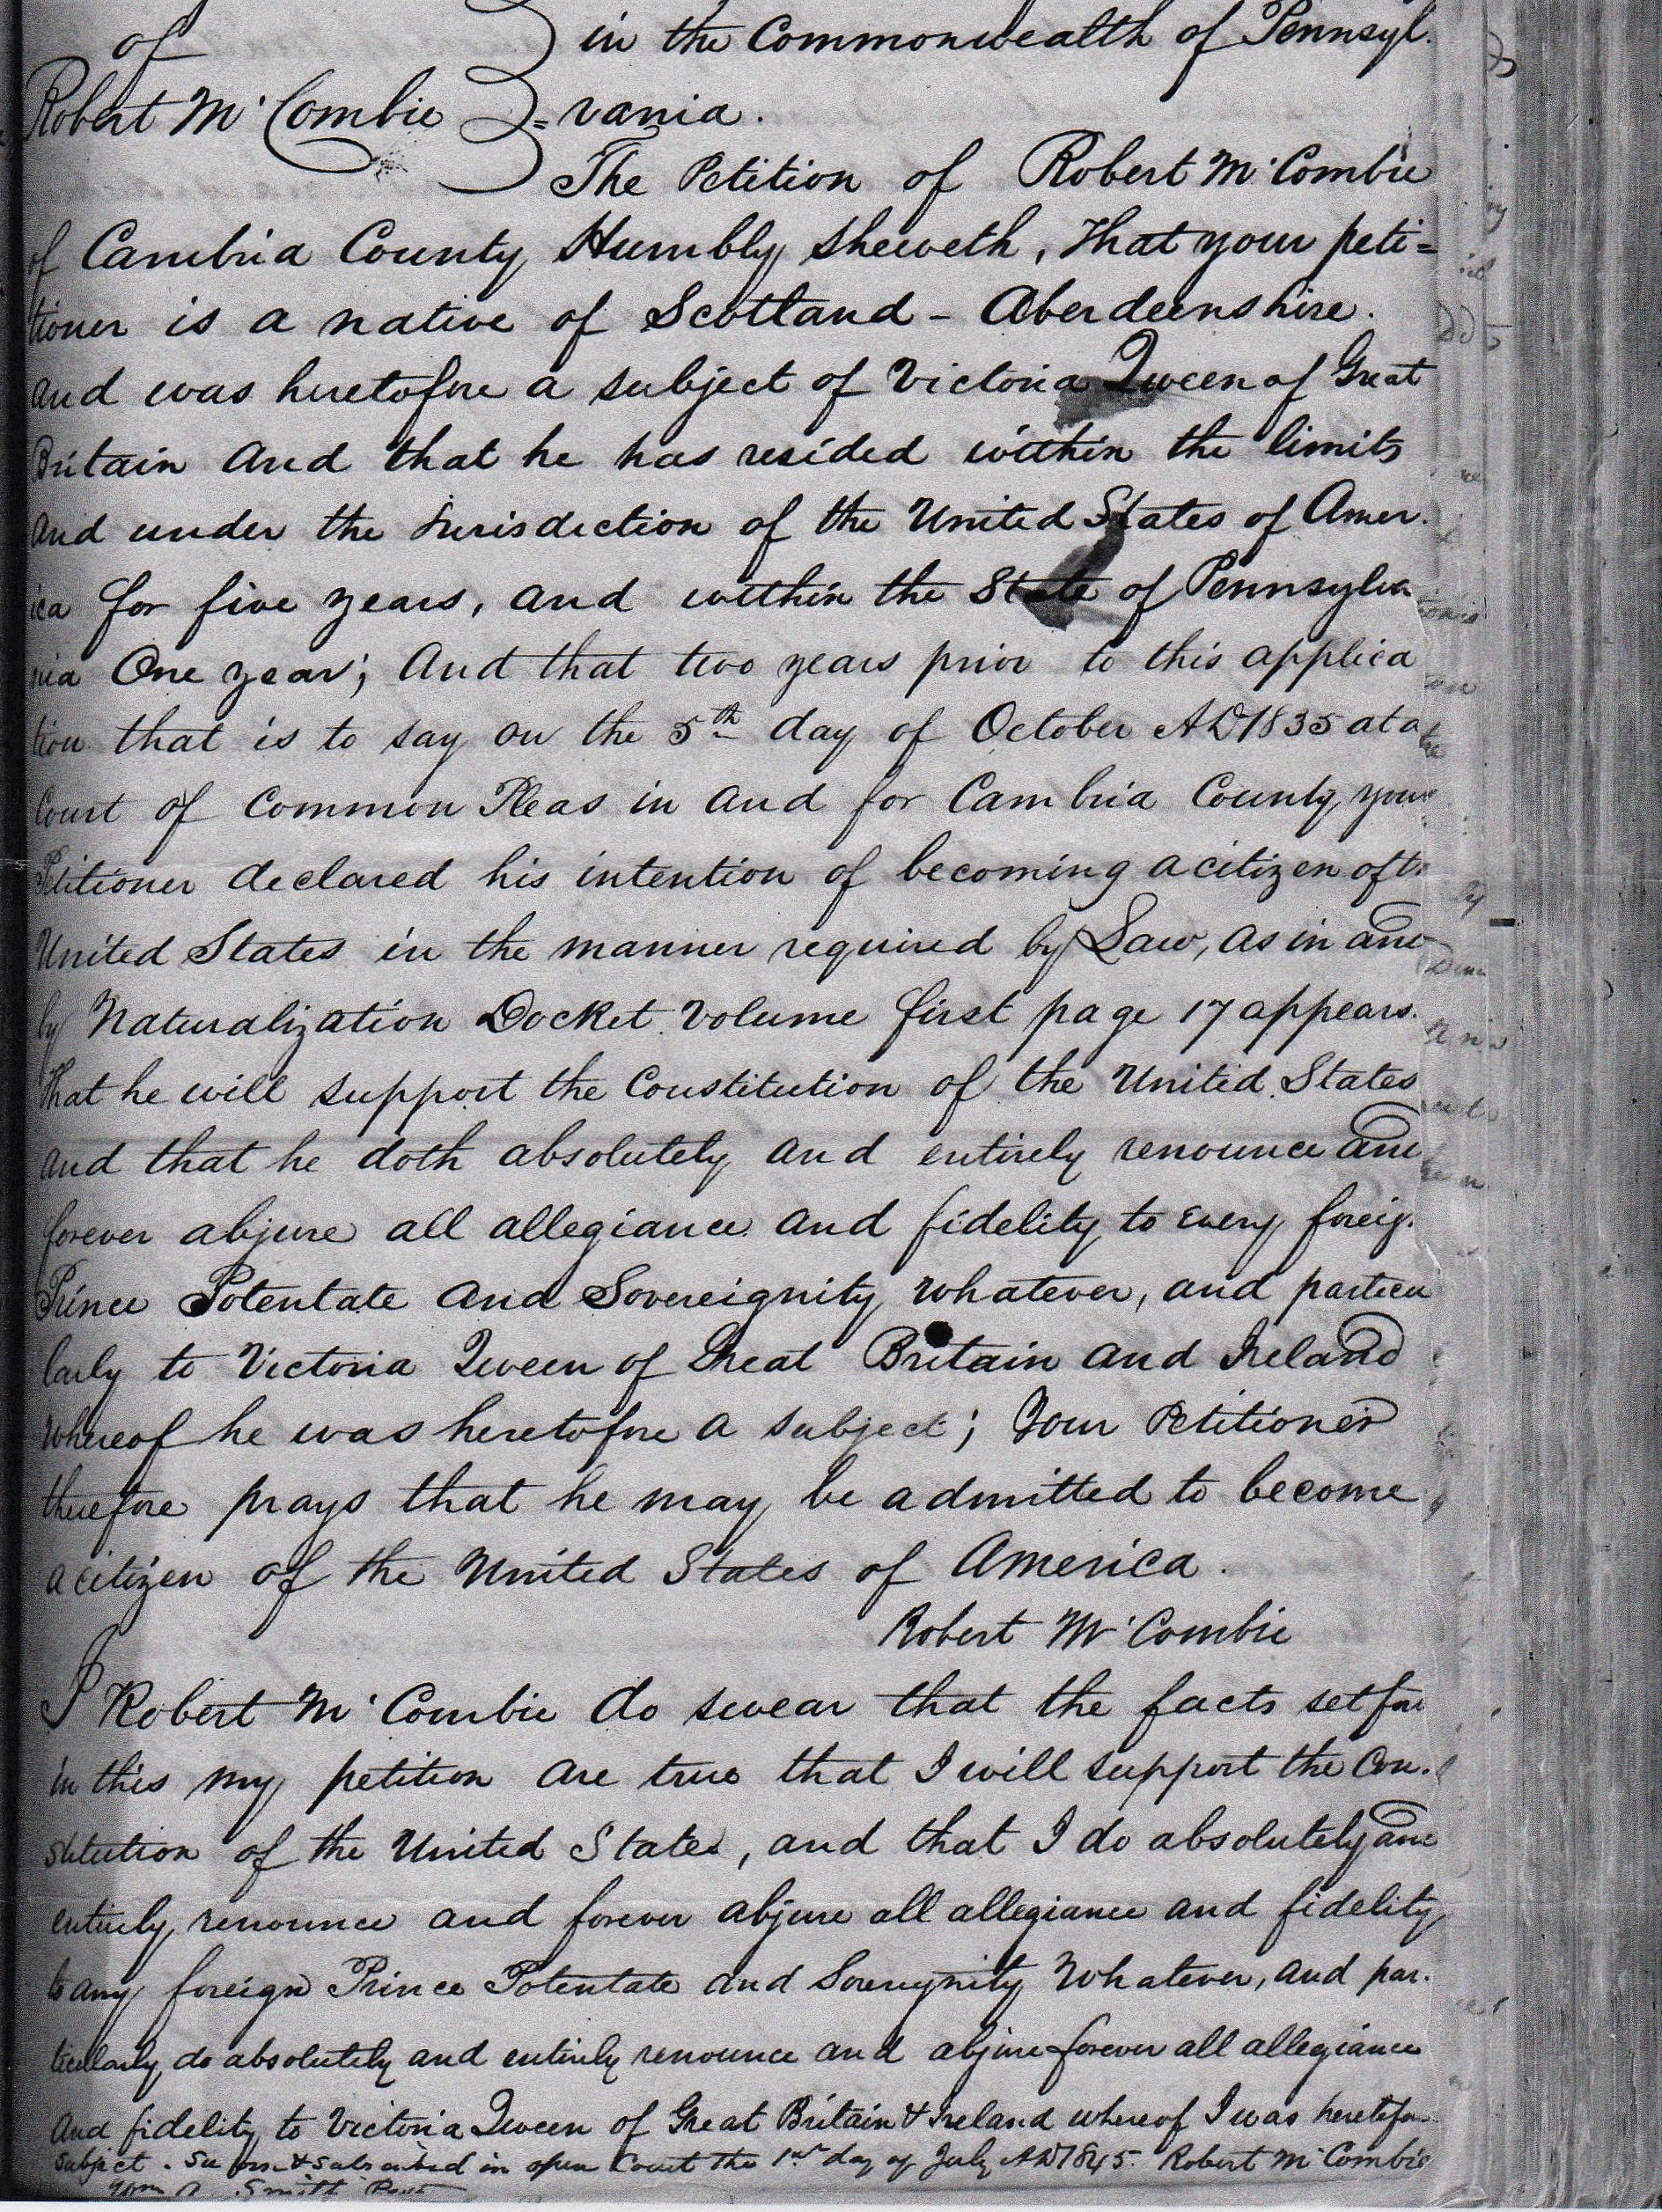 of in the Commonwealth of Pennsyl.
Robert Mc Combie =vania.
The Petition of Robert Mc Combie
of Cambria County Humbly sheweth, that your peti=
tioner is a native of Scotland - Aberdeenshire.
and was heretofore a subject of Victoria Queen of Great
Britain and that he has resided within the limits
and under the Jurisdiction of the United States of Amer.
ica for five years, and within the State of Pennsylva
nia One year; And that two years prior to this applica
tion that is to say on the 5th day of October AD 1835 at a
Court of Common Pleas in and for Cambria County your
Petitioner declared his intention of becoming a citizen of
United States in the manner required by Law, as in and
by Naturalization Docket Volume first page 17 appears.
that he will support the Constitution of the United States
and that he doth absolutely and entirely renounce and
forever abjure all allegiance and fidelity to every foreig.
Prince Potentate and Sovereignity whatever, and particu
larly to Victoria Queen of Great Britain and Ireland
whereof he was heretofore a subject; Your Petitioner
therefore prays that he may be admitted to become
a citizen of the United States of America.
Robert Mc Combie
I Robert Mc Combie do swear that the facts set for
in this my petition are true that I will support the Con.
stitution of the United States, and that I do absolutely and
entirely renounce and forever abjure all allegiance and fidelity
to any foreign Prince Potentate and Sovereignity whatever, and par.
ticularly do absolutely and entirely renounce and abjure forever all allegiance
and fidelity to Victoria Queen of Great Britain & Ireland whereof I was heretofo
subject. Sworn & subscribed in open Court the 1st day of July AD 1845. Robert Mc Combie
Smith